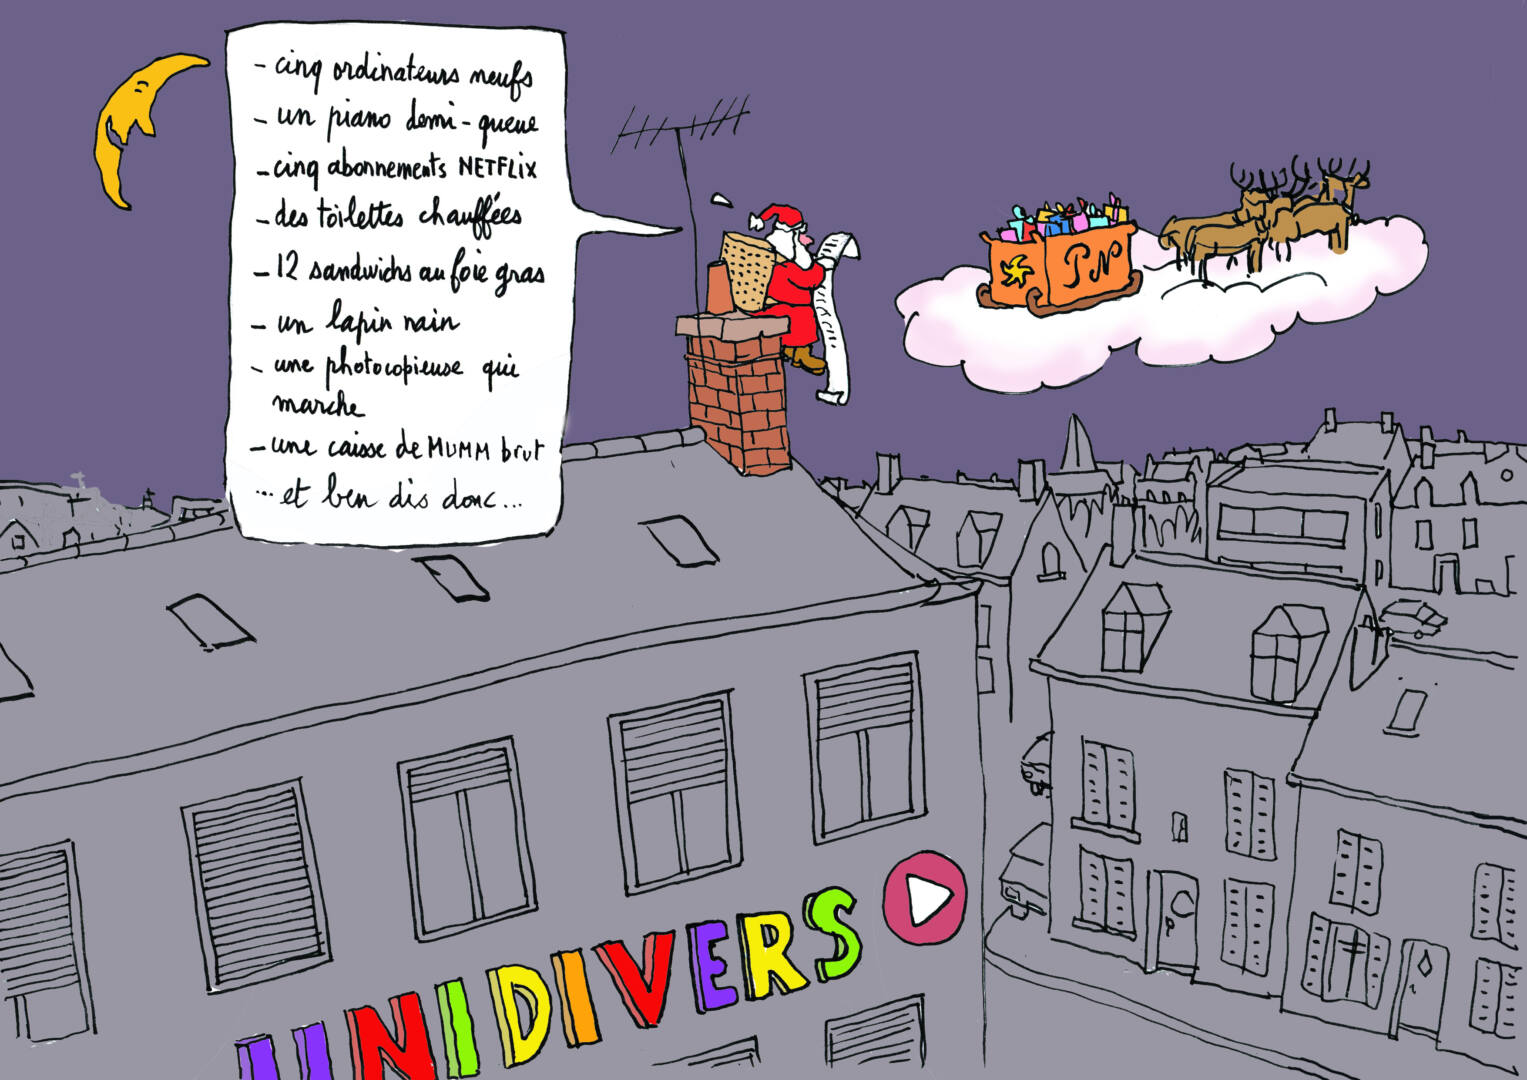 - cinq ordinateurs neufs
- un piano demi-queue
- cinq abonnements NETFLIX
- des toilettes chauffées
- 12 sandwichs au foie gras
- un lapin nain
- une photocopieuse qui
marche
- une caisse de MUMM brut
... et ben dis donc...
PN
UNIDIVERS